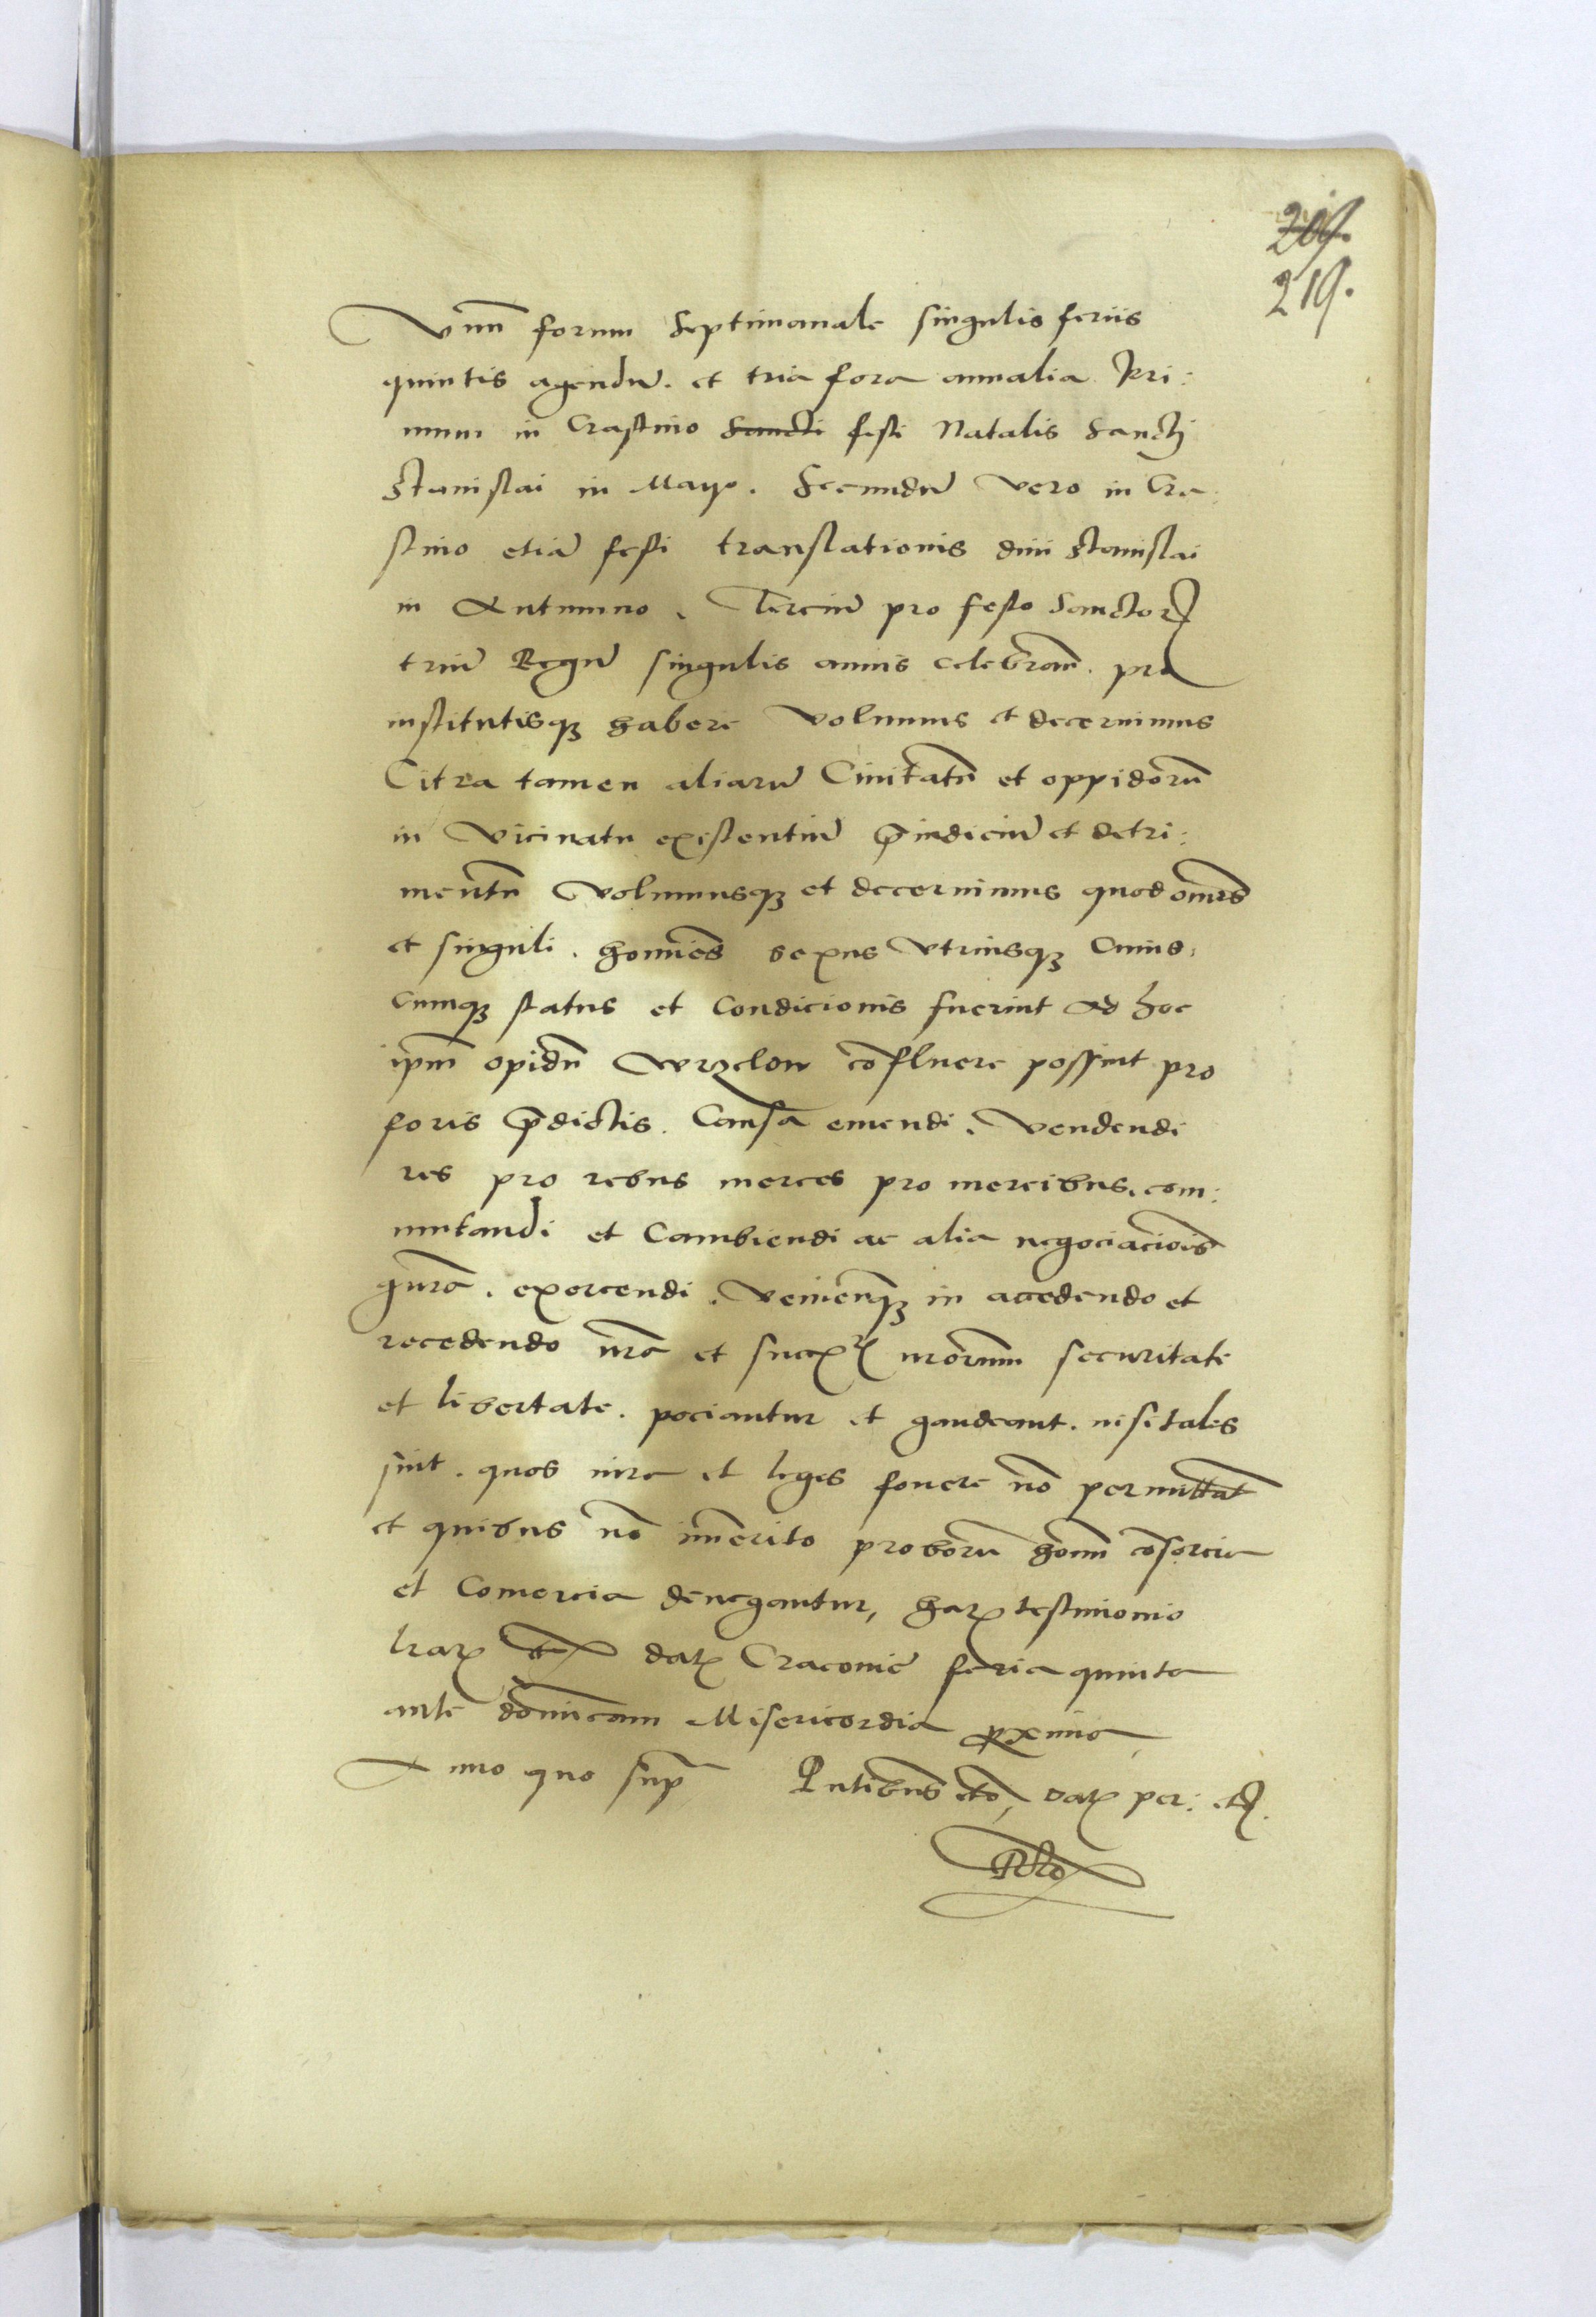 209.
219.
Vnū forum Septimanale singulis feriis
quintis agendū. et tria fora annalia Pri:
mum in Crastino Sancti festi Natalis Sancti
Stanislai in Mayo. Secundū vero in Cra:
stino etiā festi translationis diui Stanislai
in Autumno. Terciū pro festo Sanctor
triū Regū singulis annis celebran̄. pro
institutisqȝ habere volumus et decernimus
Citra tamen aliarū Ciuitatū et oppidorū
in vicinatu existentiū p̄iudiciū et detri:
mentū volumusqȝ et decernimus quod om̄es
et singuli. homīes sexus vtriusqȝ Cuius,
cumqȝ status et condicionis fuerint ad hoc
ip̄m opidū Wrzelow cōfluere possint pro
foris p̄dictis. Causa emendi. vendendi
res pro rebus merces pro mercibus. com:
mutandi et Cambiendi ac alia negociaciōis
gn̄ra. exercendi. venienqȝ in accedendo et
recedendo n̄ra et succ n̄rorum securitate
et libertate. pociantur et gaudeant. nisi tales
sint. quos iura et leges fouere nō permittāt
et quibus nō im̄erito proborū homī cōsorcia
et Comercia denegantur, har testimonio
lrar̄ etc dat Cracouie feria quinta
ante dominicam Misericordia proxima
Anno quo sup̄ P̄ntibus etc, dat per: etc.